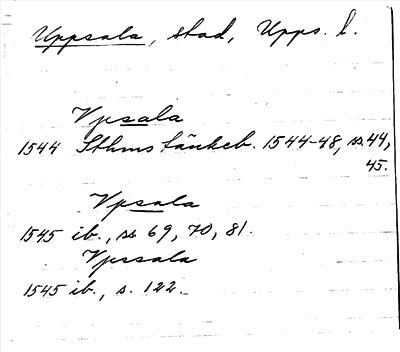 Uppsala, stad, Upps. l.
Vpsala
1544 Sthms tänkeb. 1544-48, ss. 44,
45.
Vpsala
1545 ib., ss 69, 70, 81.
Vpssala
1545 ib., s. 122.